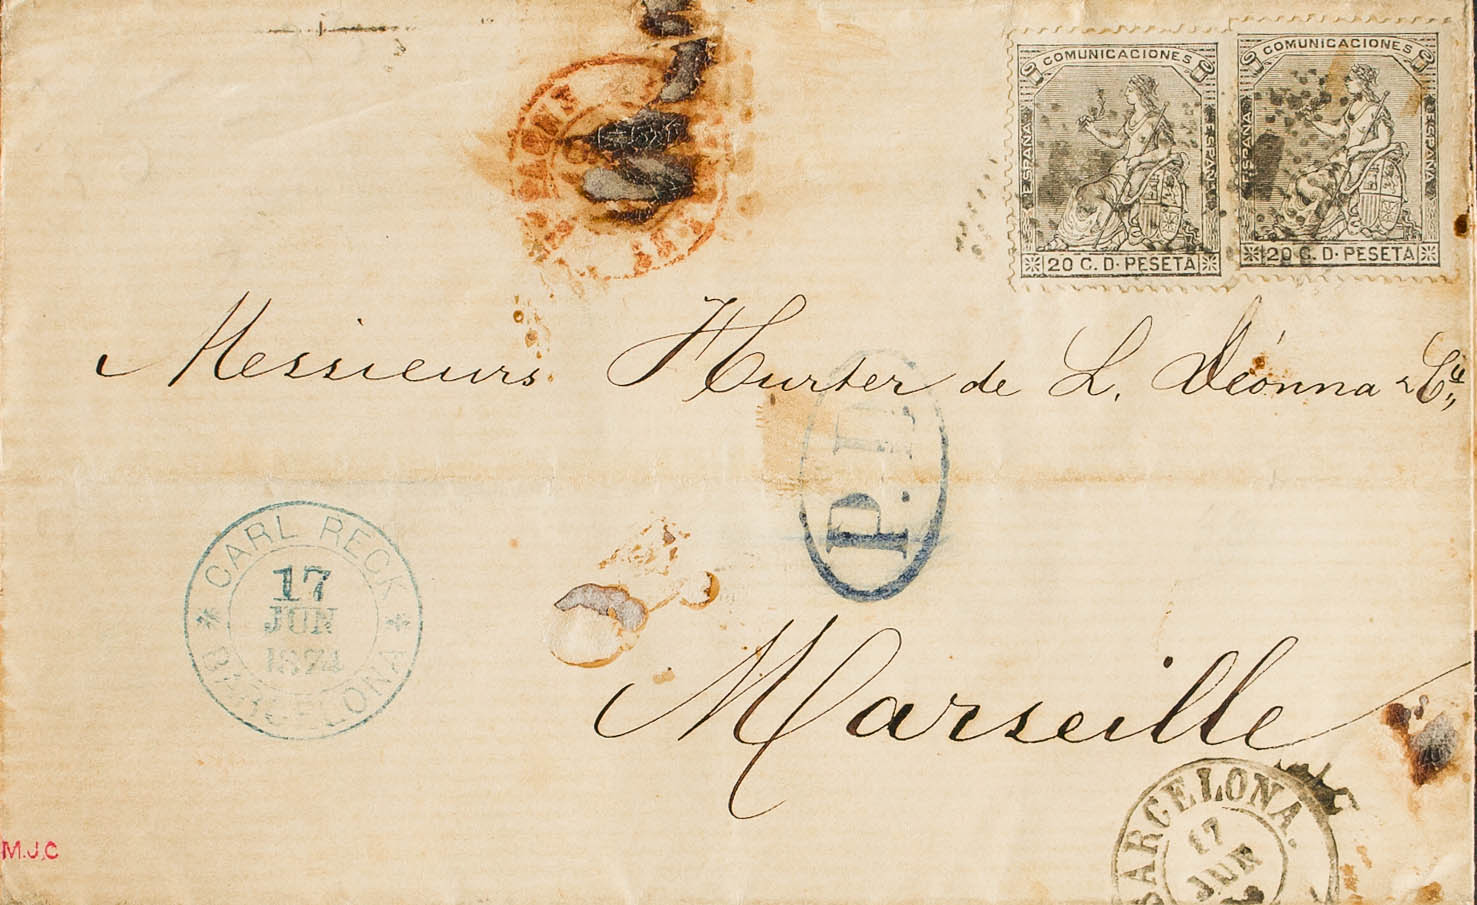 COMUNICACIONES
ESPAÑA
ESPAÑA
20 C. D. PESETA
COMUNICACIONES
ESPAÑA
ESPAÑA
20 C. D. PESETA
Messieurs Hurter de L. Déonna & Cie
P.D.
CARL RECK
17
JUN
1874
BARCELONA
Marseille
BARCELONA.
17
JUN
M.J.C